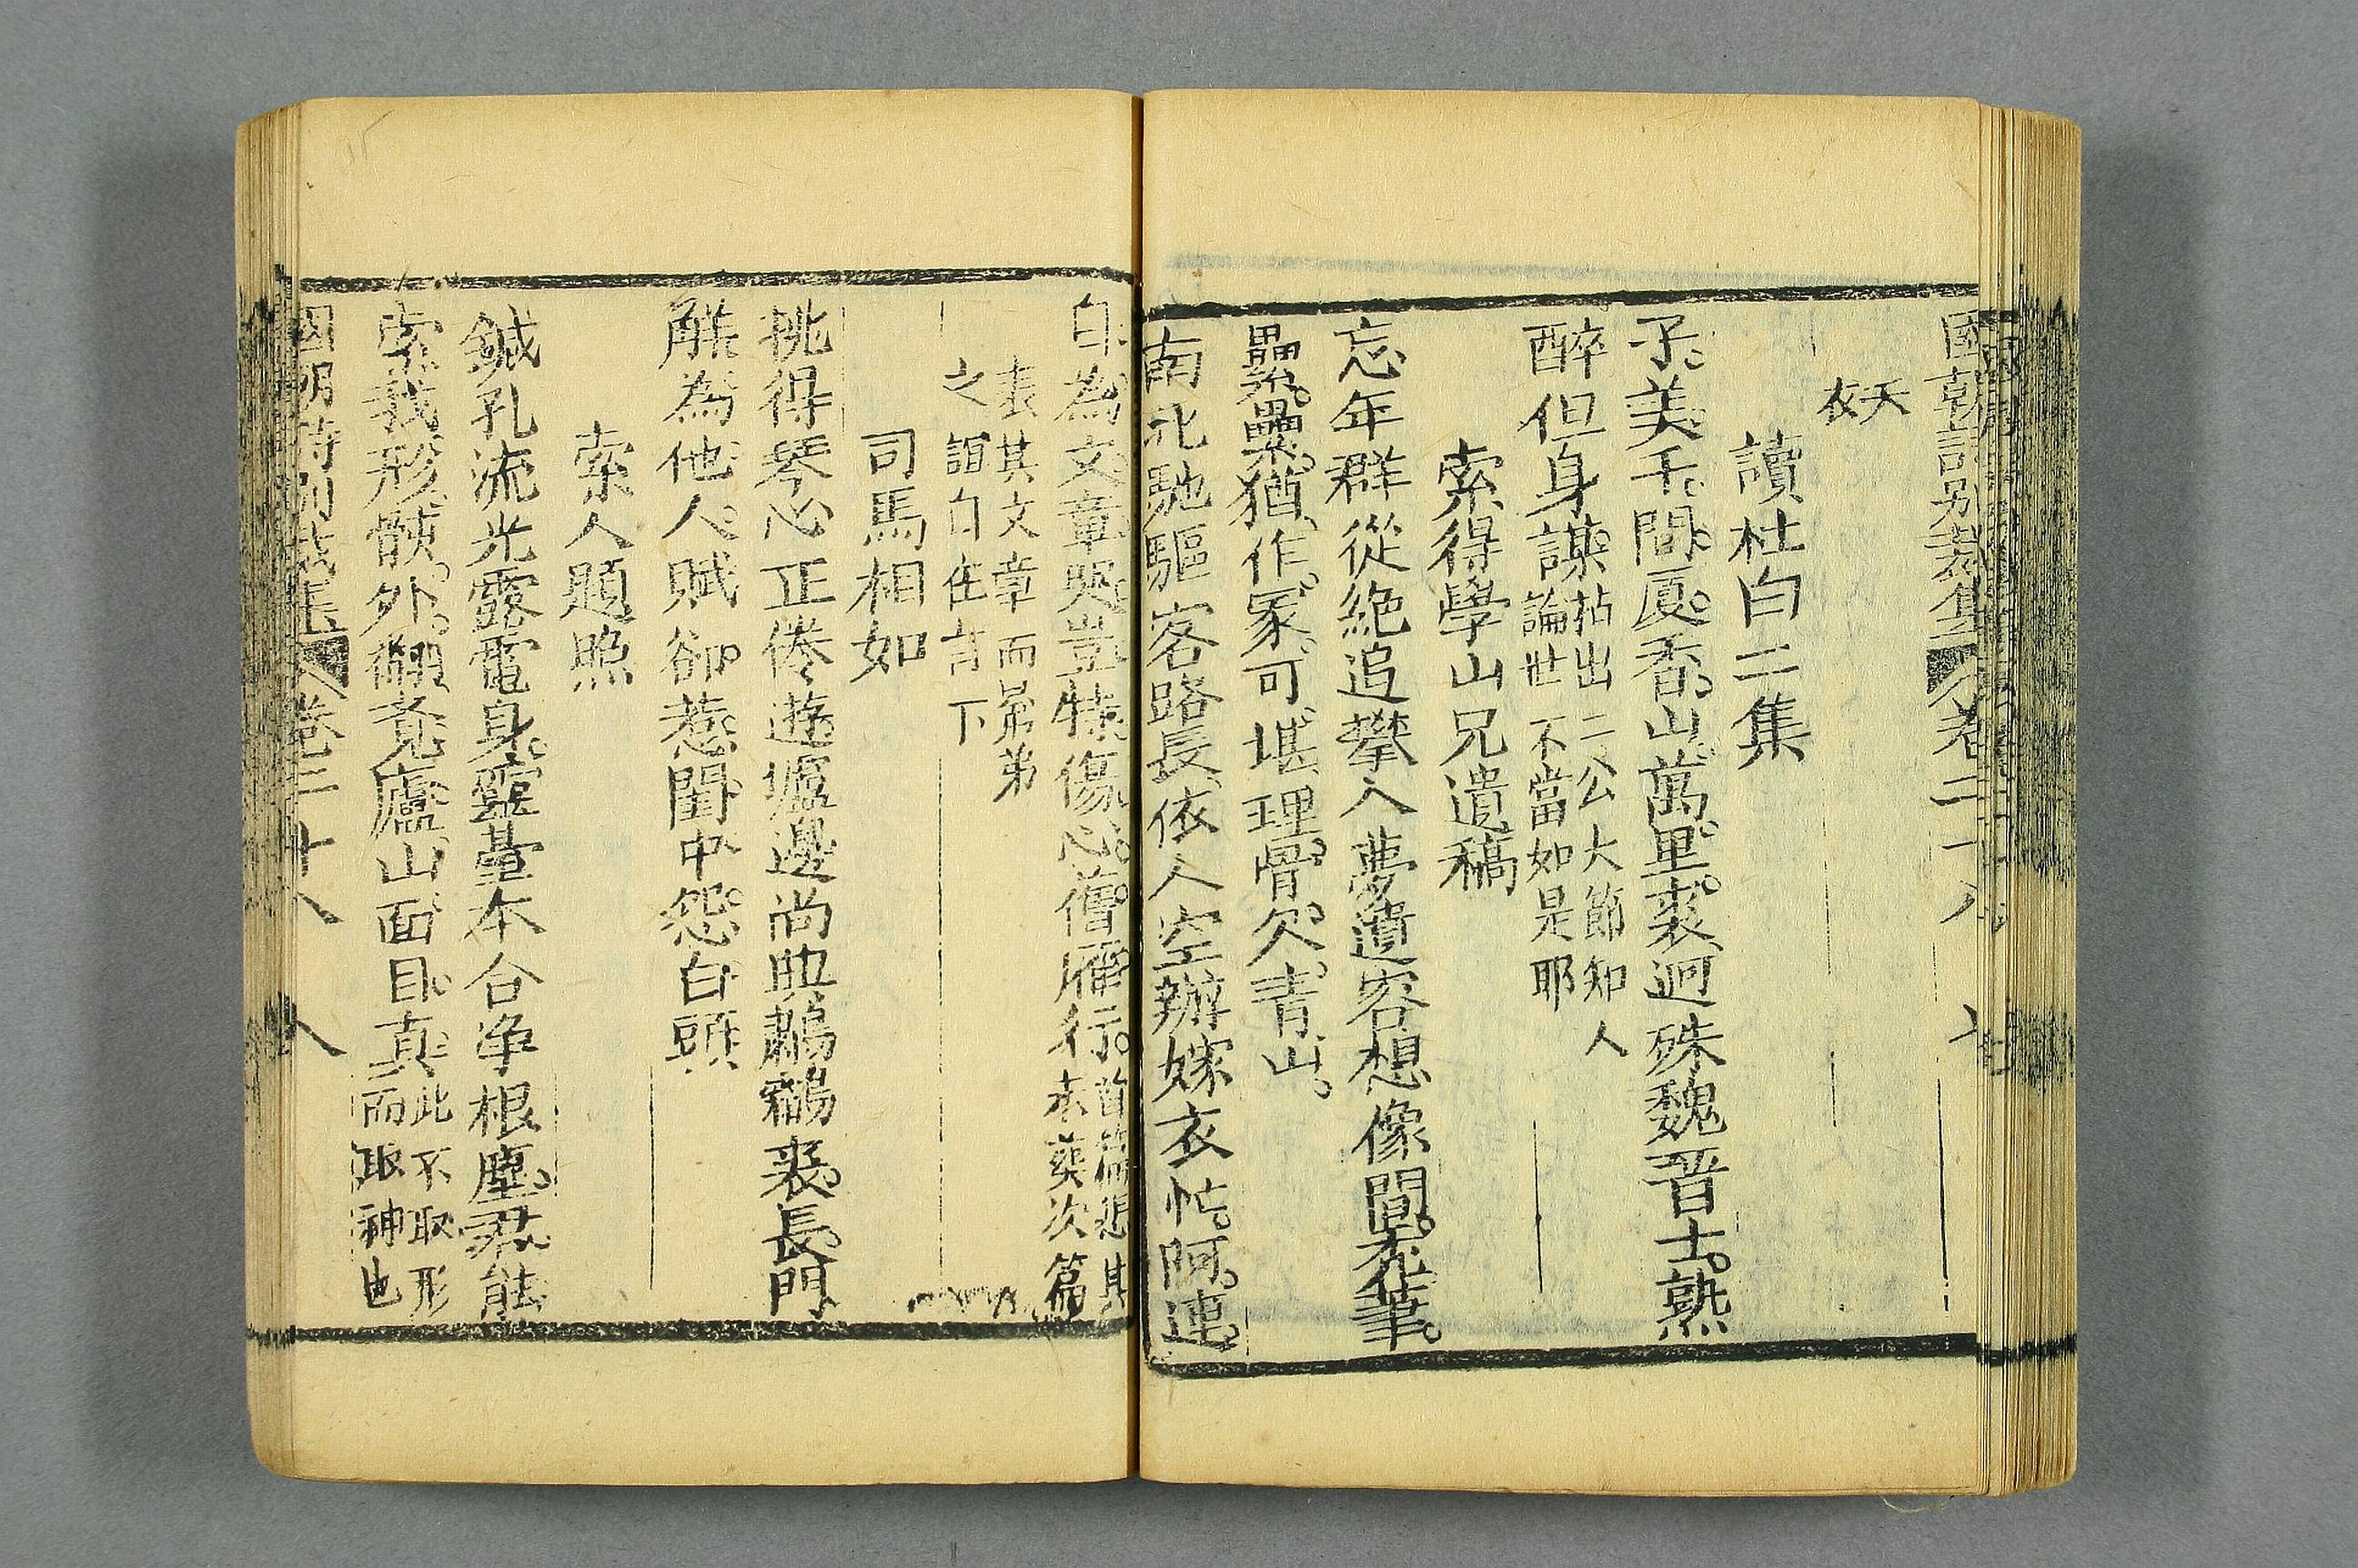 國朝詩別裁集 卷二十八 七
天
衣
讀杜白二集
子美千間厦香山萬里裘迥殊魏晋士熟
醉但身謀拈出二公大節知人
論世不當如是耶
索得學山兄遺稿
忘年群從絶追攀入夢遺容想像間禿筆
纍纍猶作冢可堪理骨欠青山
南北馳驅客路長依人空辦嫁衣忙阿連
自為文章哭豈特傷心舊雁行首篇悲其
未葬次篇
表其文章而弟弟
之誼自在言下
司馬相如
挑得琴心正倦遊壚邊尚典鷫鸘裘長門
解為他人賦卻惹閨中怨白頭
索人題照
鍼孔流光露電身靈臺本合净根塵君能
索我形骸外翻覓廬山面目真此不取形
而取神也
國朝詩別裁集 卷二十八 八